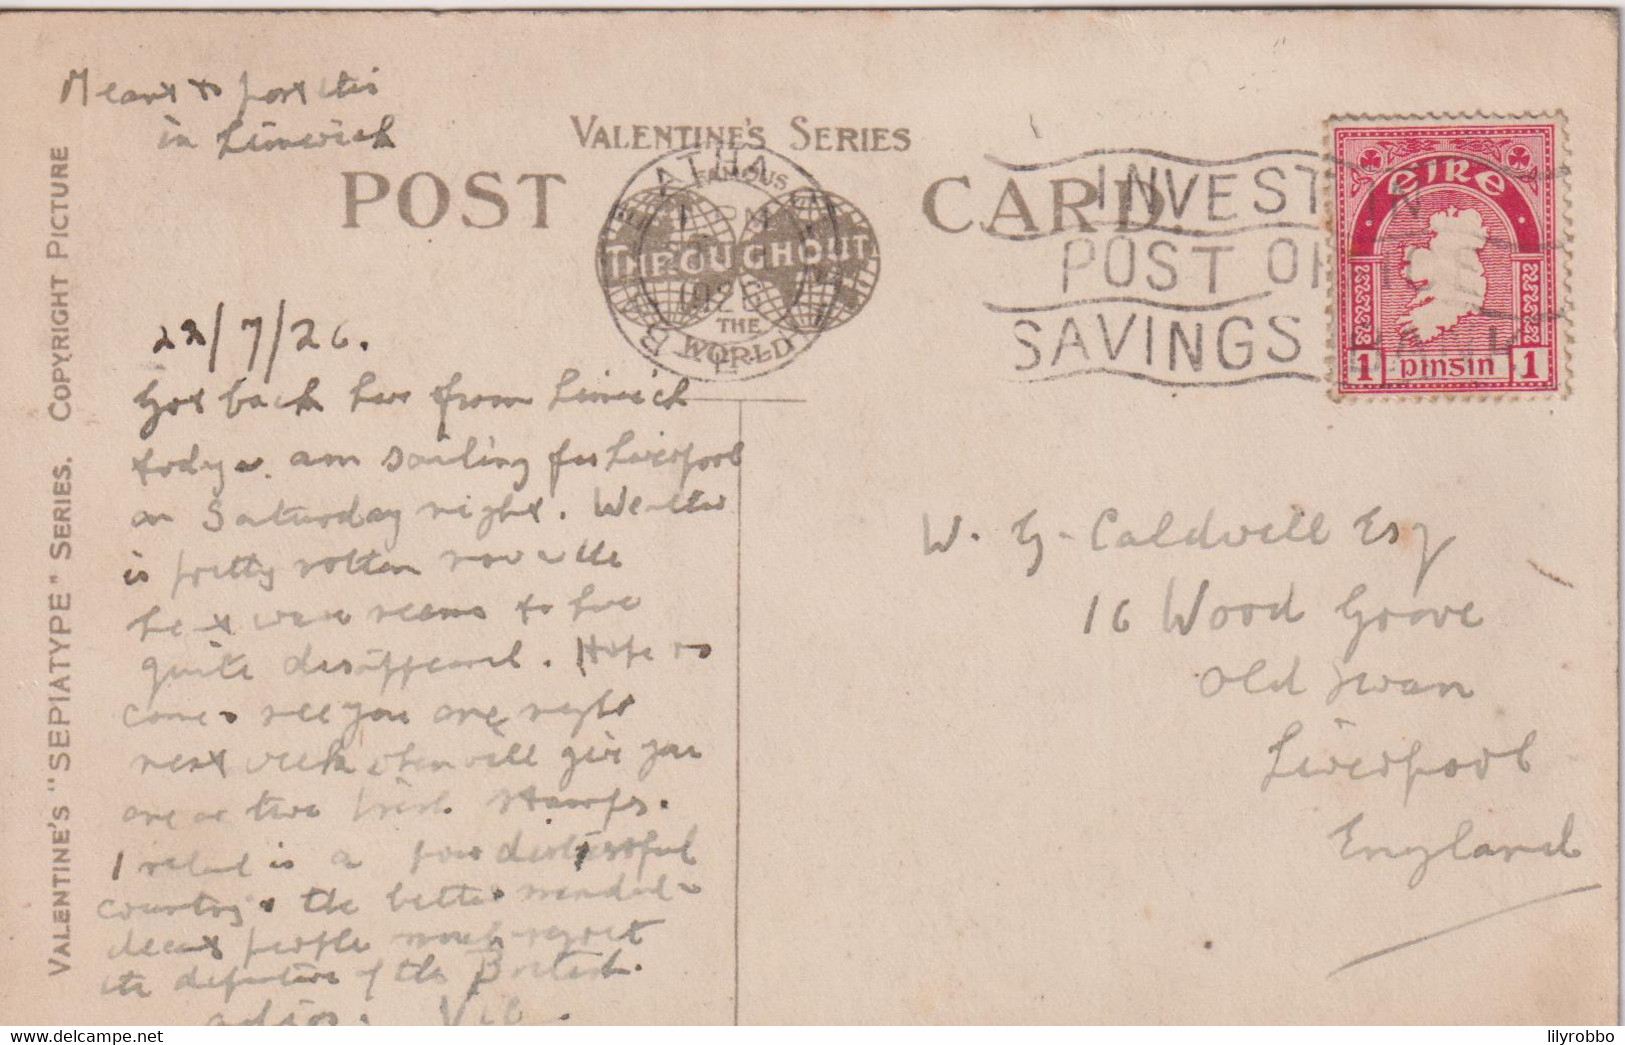 Meant to post this
in Limerick
VALENTINE'S SERIES
POST CARD.
FAMOUS
THROUGHOUT
THE
WORLD
BAILE ÁTHA CLIATH
1926
INVEST IN
POST OFFICE
SAVINGS BANK
éire
1 pinsin 1
VALENTINE'S "SEPIATYPE" SERIES. COPYRIGHT PICTURE
22/7/26.
Got back here from Limerick
today & am sailing for Liverpool
on Saturday night. Weather
is pretty rotten now & the
heat wave seems to have
quite disappeared. Hope to
come & see you one night
next week when will give you
one or two Irish stamps.
Ireland is a poor distressful
country & the better minded &
decent people much regret
the departure of the British.
adios. Vic.
W. G. Caldwell Esq
16 Wood Grove
Old Swan
Liverpool
England
lilyrobbo